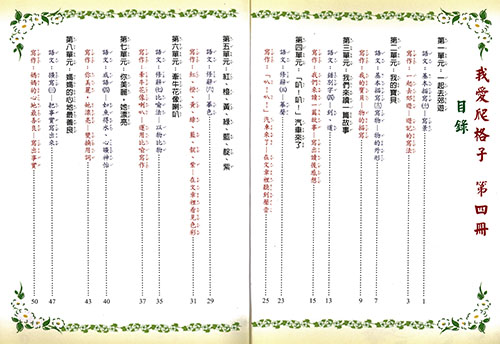 我愛爬格子 第四冊
目錄
第一單元：一起去郊遊
語文：基本描寫㈠寫景 1
寫作：一起去郊遊－遊記的寫法 3
第二單元：我的寶貝
語文：基本描寫㈡寫物－物的外形 7
寫作：我的寶貝－物的描寫 9
第三單元：我們來讀一篇故事
語文：錯別字㈣到、道 13
寫作：我們來讀一篇故事－寫出讀後感想 15
第四單元：「叭！叭！」汽車來了
語文：修辭㈤摹聲 23
寫作：「叭！叭！」汽車來了－在文章裡聽到聲音 25
第五單元：紅、橙、黃、綠、藍、靛、紫
語文：修辭㈥摹色 29
寫作：紅、橙、黃、綠、藍、靛、紫－在文章裡看見色彩 31
第六單元：牽牛花像喇叭
語文：修辭㈦比喻法－以物比物 35
寫作：牽牛花像喇叭－運用比喻寫作 37
第七單元：你美麗，她漂亮
語文：成語㈣如魚得水、心曠神怡 40
寫作：你美麗，她漂亮－變換用詞 43
第八單元：媽媽的心地最善良
語文：擴寫㈢把事實寫出來 47
寫作：媽媽的心地最善良－寫出事實 50